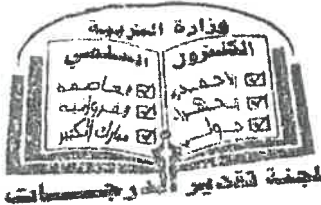 وزارة التربية
الكنترول
الأحمدي
حولي
العلمي
العاصمة
الفروانية
مبارك الكبير
لجنة تقدير درجات